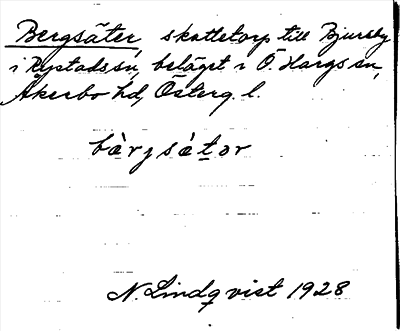 Bergsäter, skattetorp till Bjursby
i Rystads sn, beläget i Ö. Hargs sn,
Åkerbo hd, Österg. l.
bàrjsätər
N. Lindqvist 1928